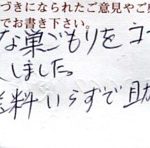 づきになられたご意見やご
でお書き下さい。
な巣ごもりをコ
しました。
料いらずで助